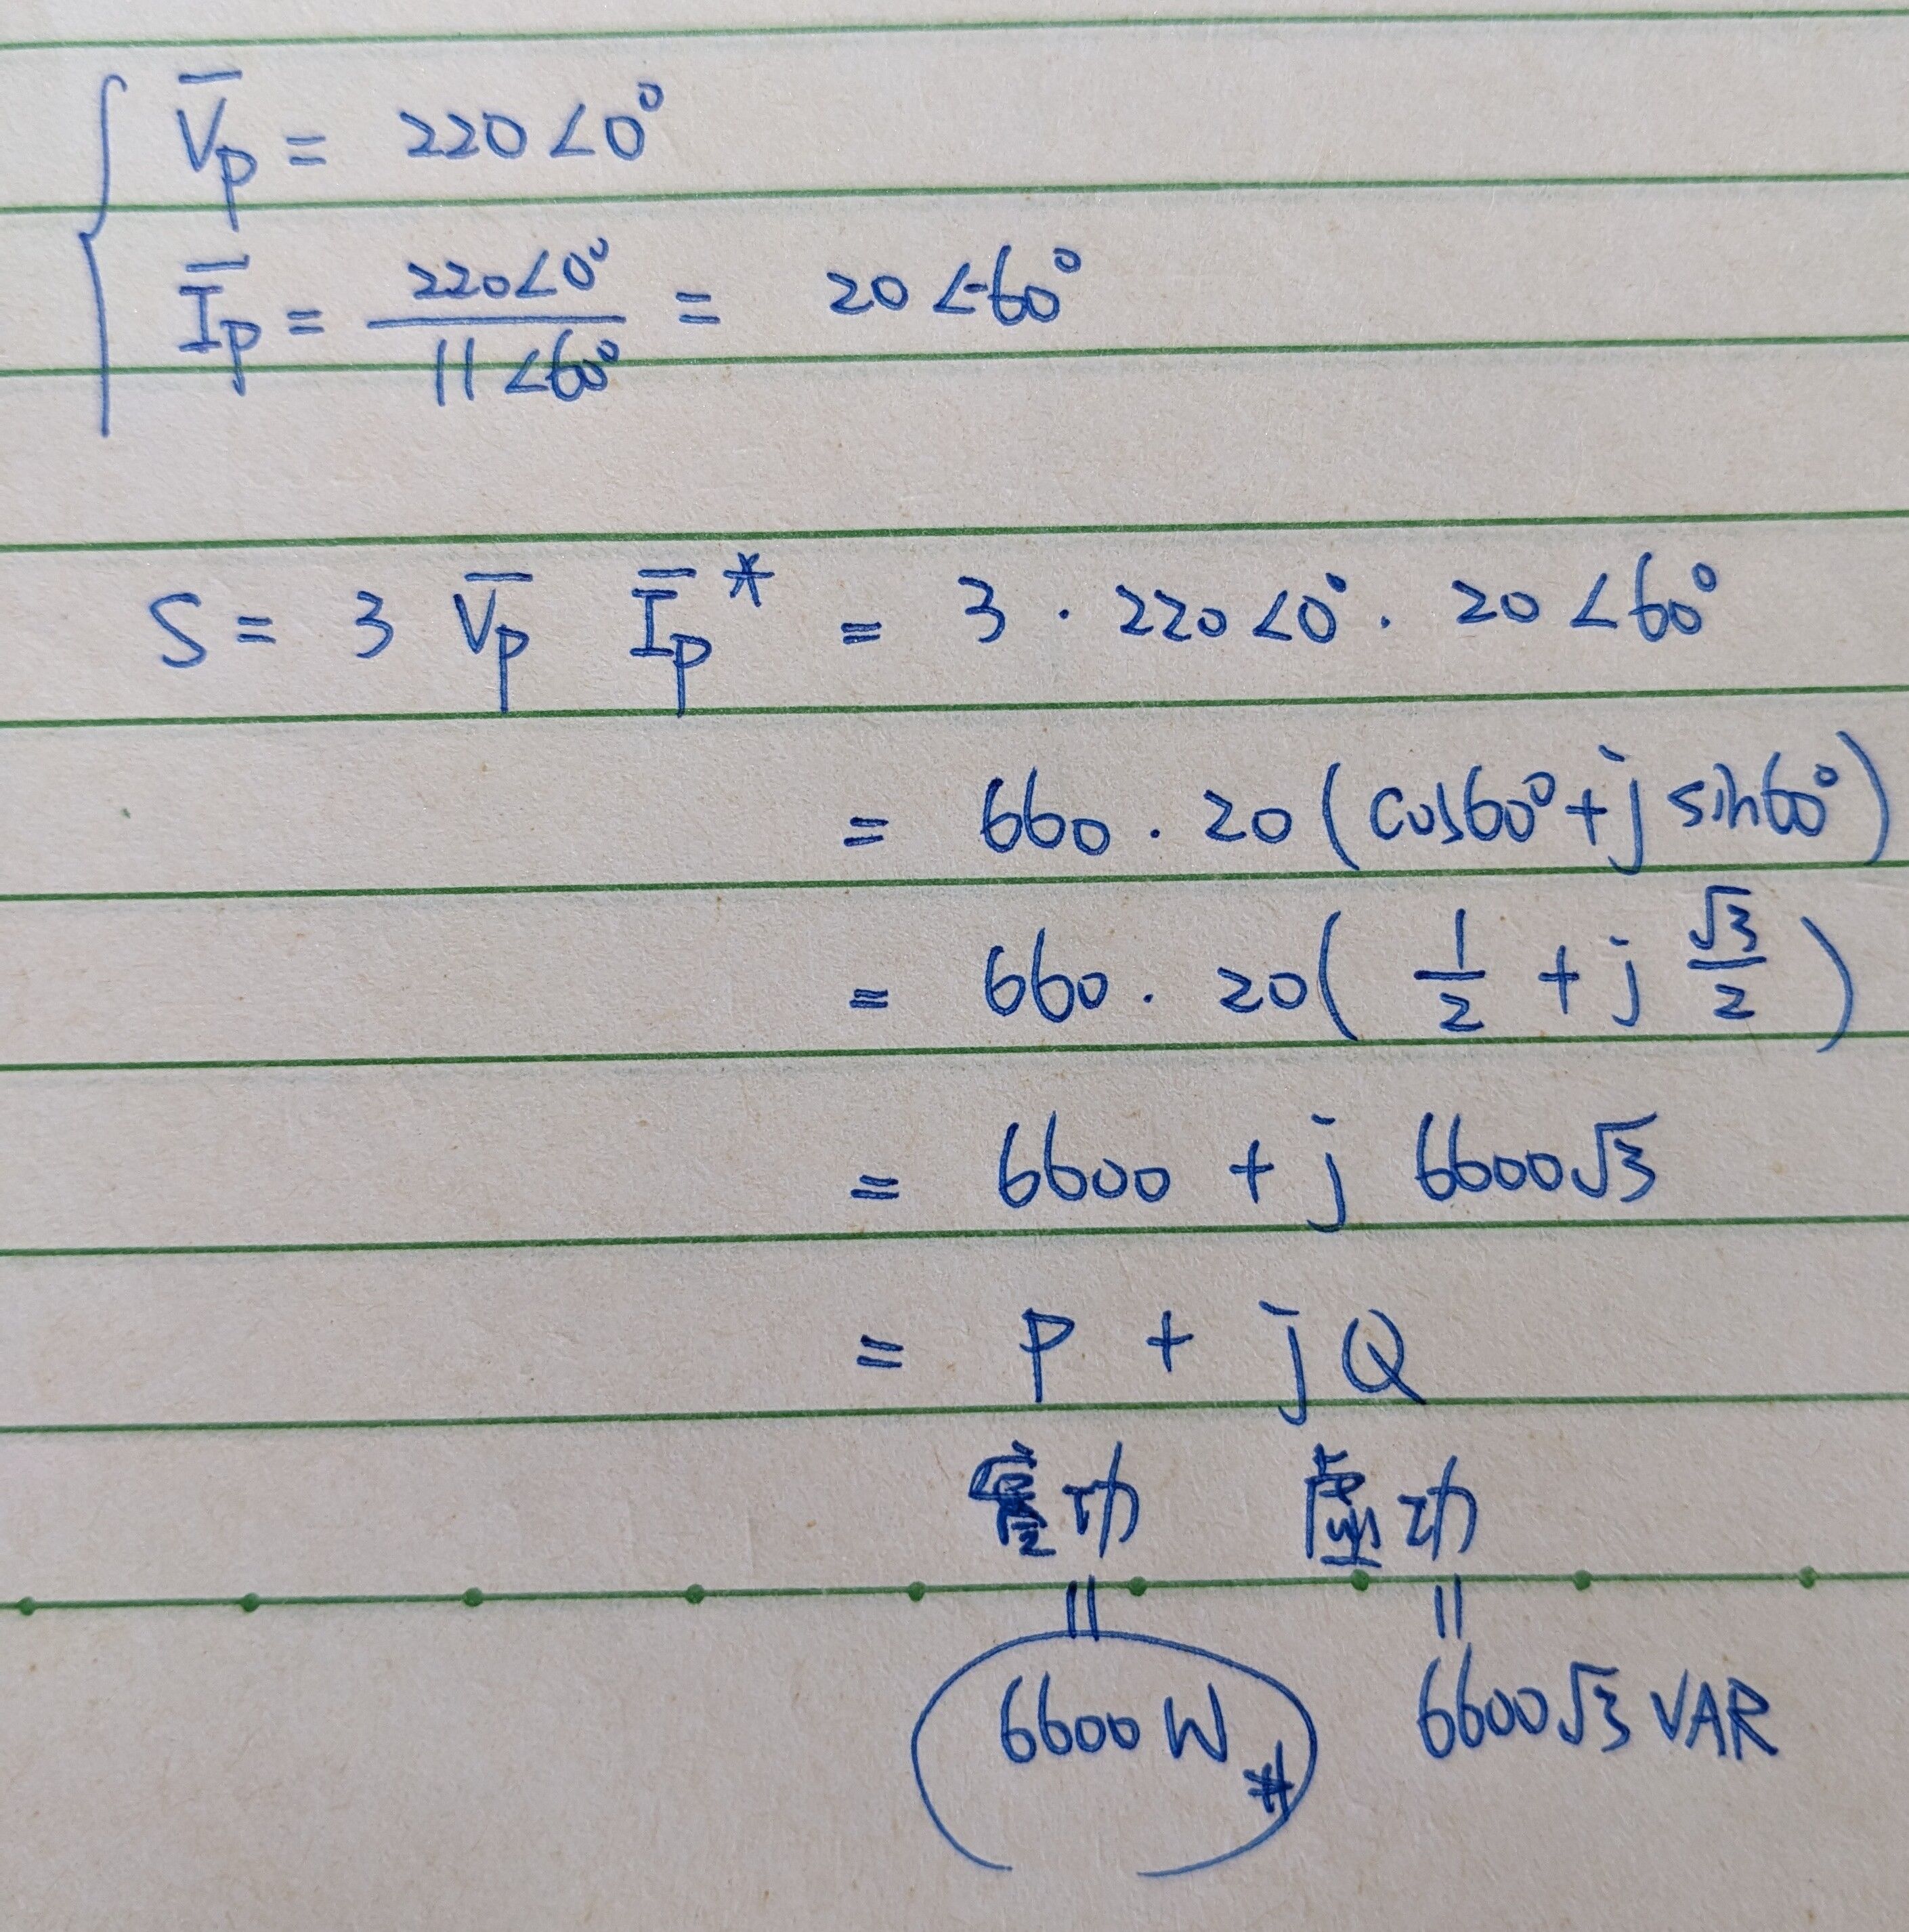 V̅p = 220∠0°
I̅p = 220∠0° / 11∠60° = 20∠-60°
S = 3 V̅p I̅p* = 3 · 220∠0° · 20∠60°
= 660 · 20 (cos60° + j sin60°)
= 660 · 20 ( 1/2 + j √3/2 )
= 6600 + j 6600√3
= P + j Q
功 虛功
= =
6600 W # 6600√3 VAR